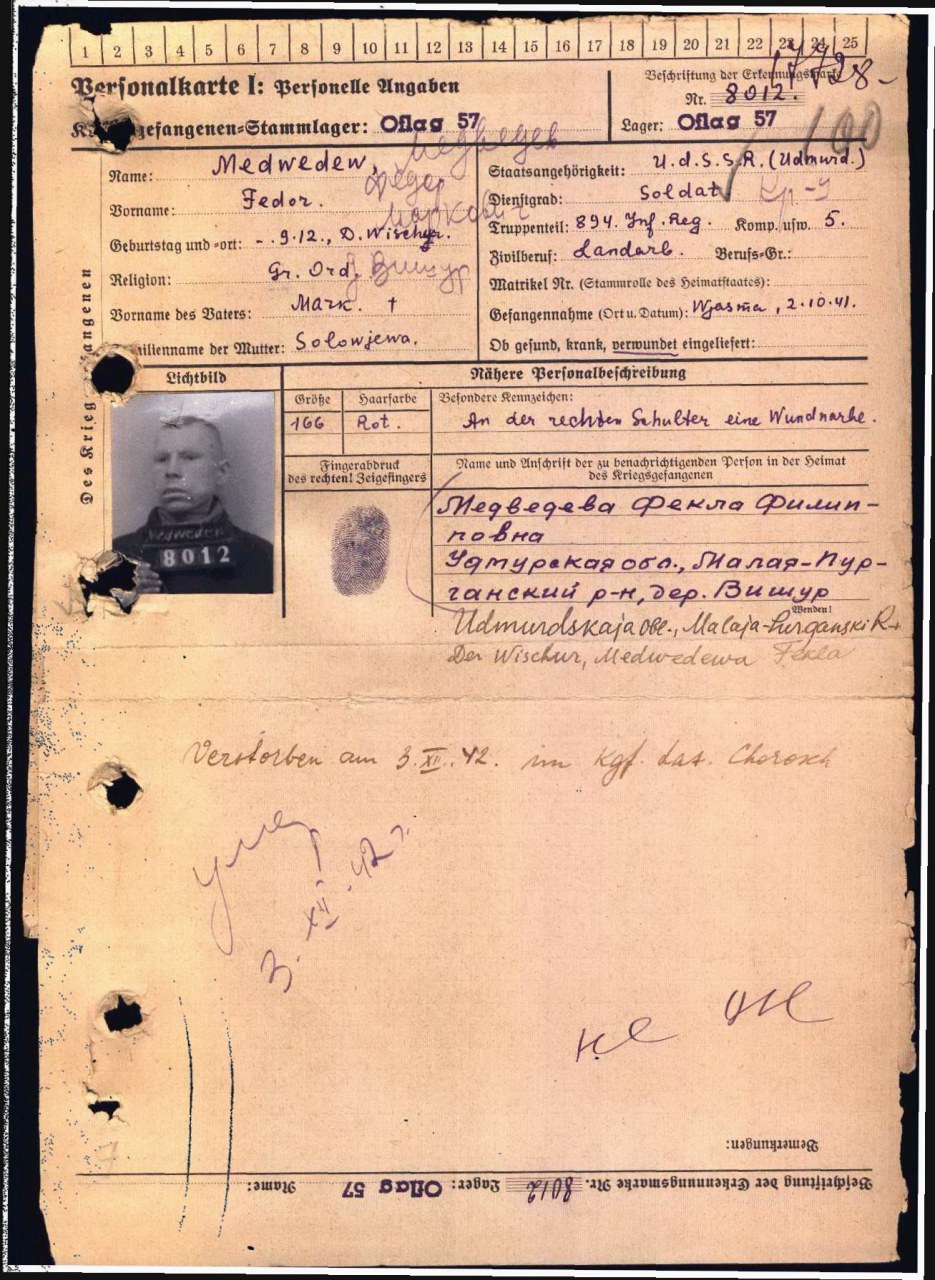 1 2 3 4 5 6 7 8 9 10 11 12 13 14 15 16 17 18 19 20 21 22 23 24 25
Personalkarte I: Personelle Angaben
gefangenen=Stammlager: Oflag 57
Beschriftung der Erkennungsmarke
Nr. 8012.
Lager: Oflag 57
100
Des Krieg angenen
Name: Medwedew,
Медведев
Vorname: Fedor.
Федор
Маркович
Geburtstag und =ort: -.9.12., D. Wischur.
Religion: Gr. Ord.
Вишур
Vorname des Vaters: Mark. †
ilienname der Mutter: Solowjewa.
Staatsangehörigkeit: U.d.S.S.R. (Udmurd.)
Dienstgrad: Soldat
Truppenteil: 894. Inf. Reg. Komp. usw. 5.
Zivilberuf: Landarb. Berufs=Gr.:
Matrikel Nr. (Stammrolle des Heimatstaates):
Gefangennahme (Ort u. Datum): Wjasma, 2.10.41.
Ob gesund, krank, verwundet eingeliefert:
Lichtbild
Nähere Personalbeschreibung
Größe Haarfarbe Besondere Kennzeichen:
166 Rot. An der rechten Schulter eine Wundnarbe.
Fingerabdruck
des rechten! Zeigefingers
Name und Anschrift der zu benachrichtigenden Person in der Heimat
des Kriegsgefangenen
MEDWEDEW
8012
Медведева Фекла Филип-
повна
Удмурская обл., Малая-Пур-
ганский р-н, дер. Вишур
Wenden!
Udmurdskaja Obl., Malaja-Purganski R-
Der Wischur, Medwedewa Fekla
Verstorben am 3.XII.42. im Kgf. Laz. Chorosch
умер
3. XII. 42 г.
Bemerkungen:
Beschriftung der Erkennungsmarke Nr. 8012 Lager: Oflag 57 Name: